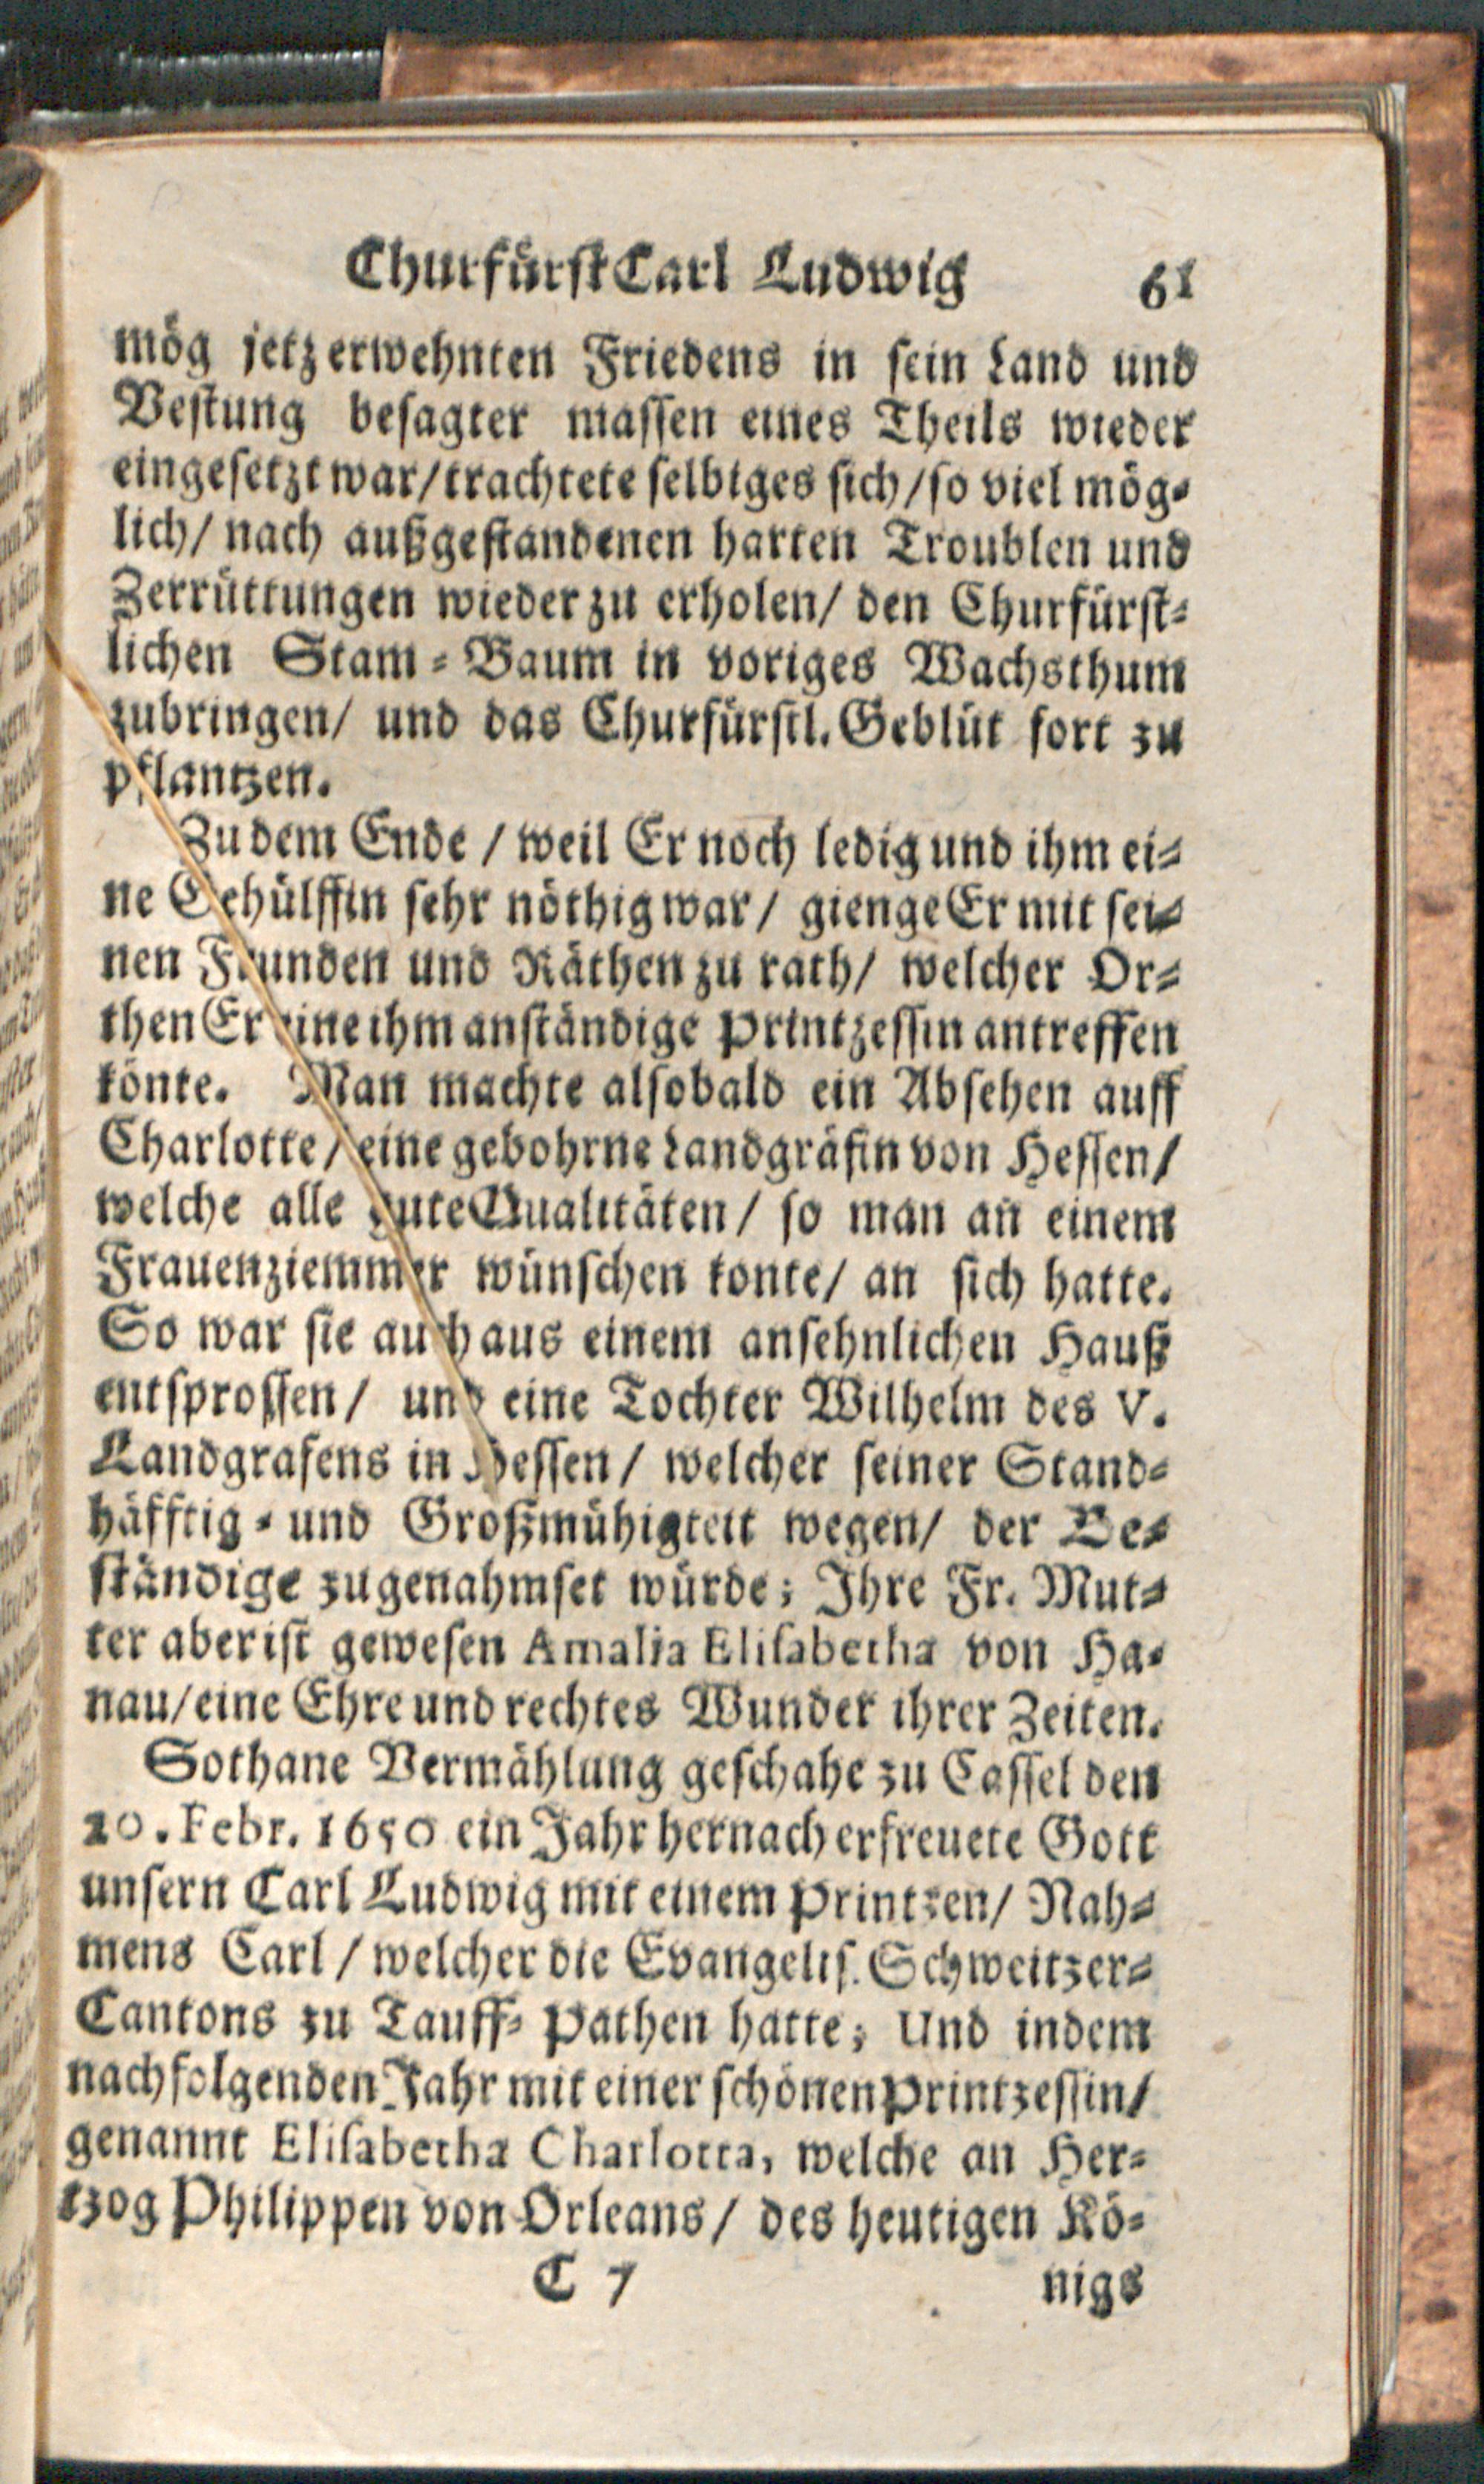 Churfürst Carl Ludwig 61
mög jetz erwehnten Friedens in sein Land und
Vestung besagter massen eines Theils wieder
eingesetzt war/ trachtete selbiges sich/ so viel mög-
lich/ nach außgestandenen harten Troublen und
Zerrüttungen wieder zu erholen/ den Churfürst-
lichen Stam-Baum in voriges Wachsthum
zubringen/ und das Churfürstl. Geblüt fort zu
pflantzen.
Zu dem Ende / weil Er noch ledig und ihm ei-
ne Gehülffin sehr nöthig war/ gienge Er mit sei-
nen Freunden und Räthen zu rath/ welcher Or-
then Er eine ihm anständige Printzessin antreffen
könte. Man machte alsobald ein Absehen auff
Charlotte/ eine gebohrne Landgräfin von Hessen/
welche alle gute Qualitäten / so man an einem
Frauenziemmer wünschen konte/ an sich hatte.
So war sie auch aus einem ansehnlichen Hauß
entsprossen/ und eine Tochter Wilhelm des V.
Landgrafens in Hessen / welcher seiner Stand-
häfftig- und Großmühigkeit wegen/ der Be-
ständige zugenahmset würde; Ihre Fr. Mut-
ter aber ist gewesen Amalia Elisabetha von Ha-
nau/ eine Ehre und rechtes Wunder ihrer Zeiten.
Sothane Vermählung geschahe zu Cassel den
20. Febr. 1650 ein Jahr hernach erfreuete Gott
unsern Carl Ludwig mit einem Printzen/ Nah-
mens Carl / welcher die Evangelis. Schweitzer-
Cantons zu Tauff-Pathen hatte; Und indem
nachfolgenden Jahr mit einer schönen Printzessin/
genannt Elisabetha Charlotta, welche an Her-
tzog Philippen von Orleans / des heutigen Kö-
C 7 nigs